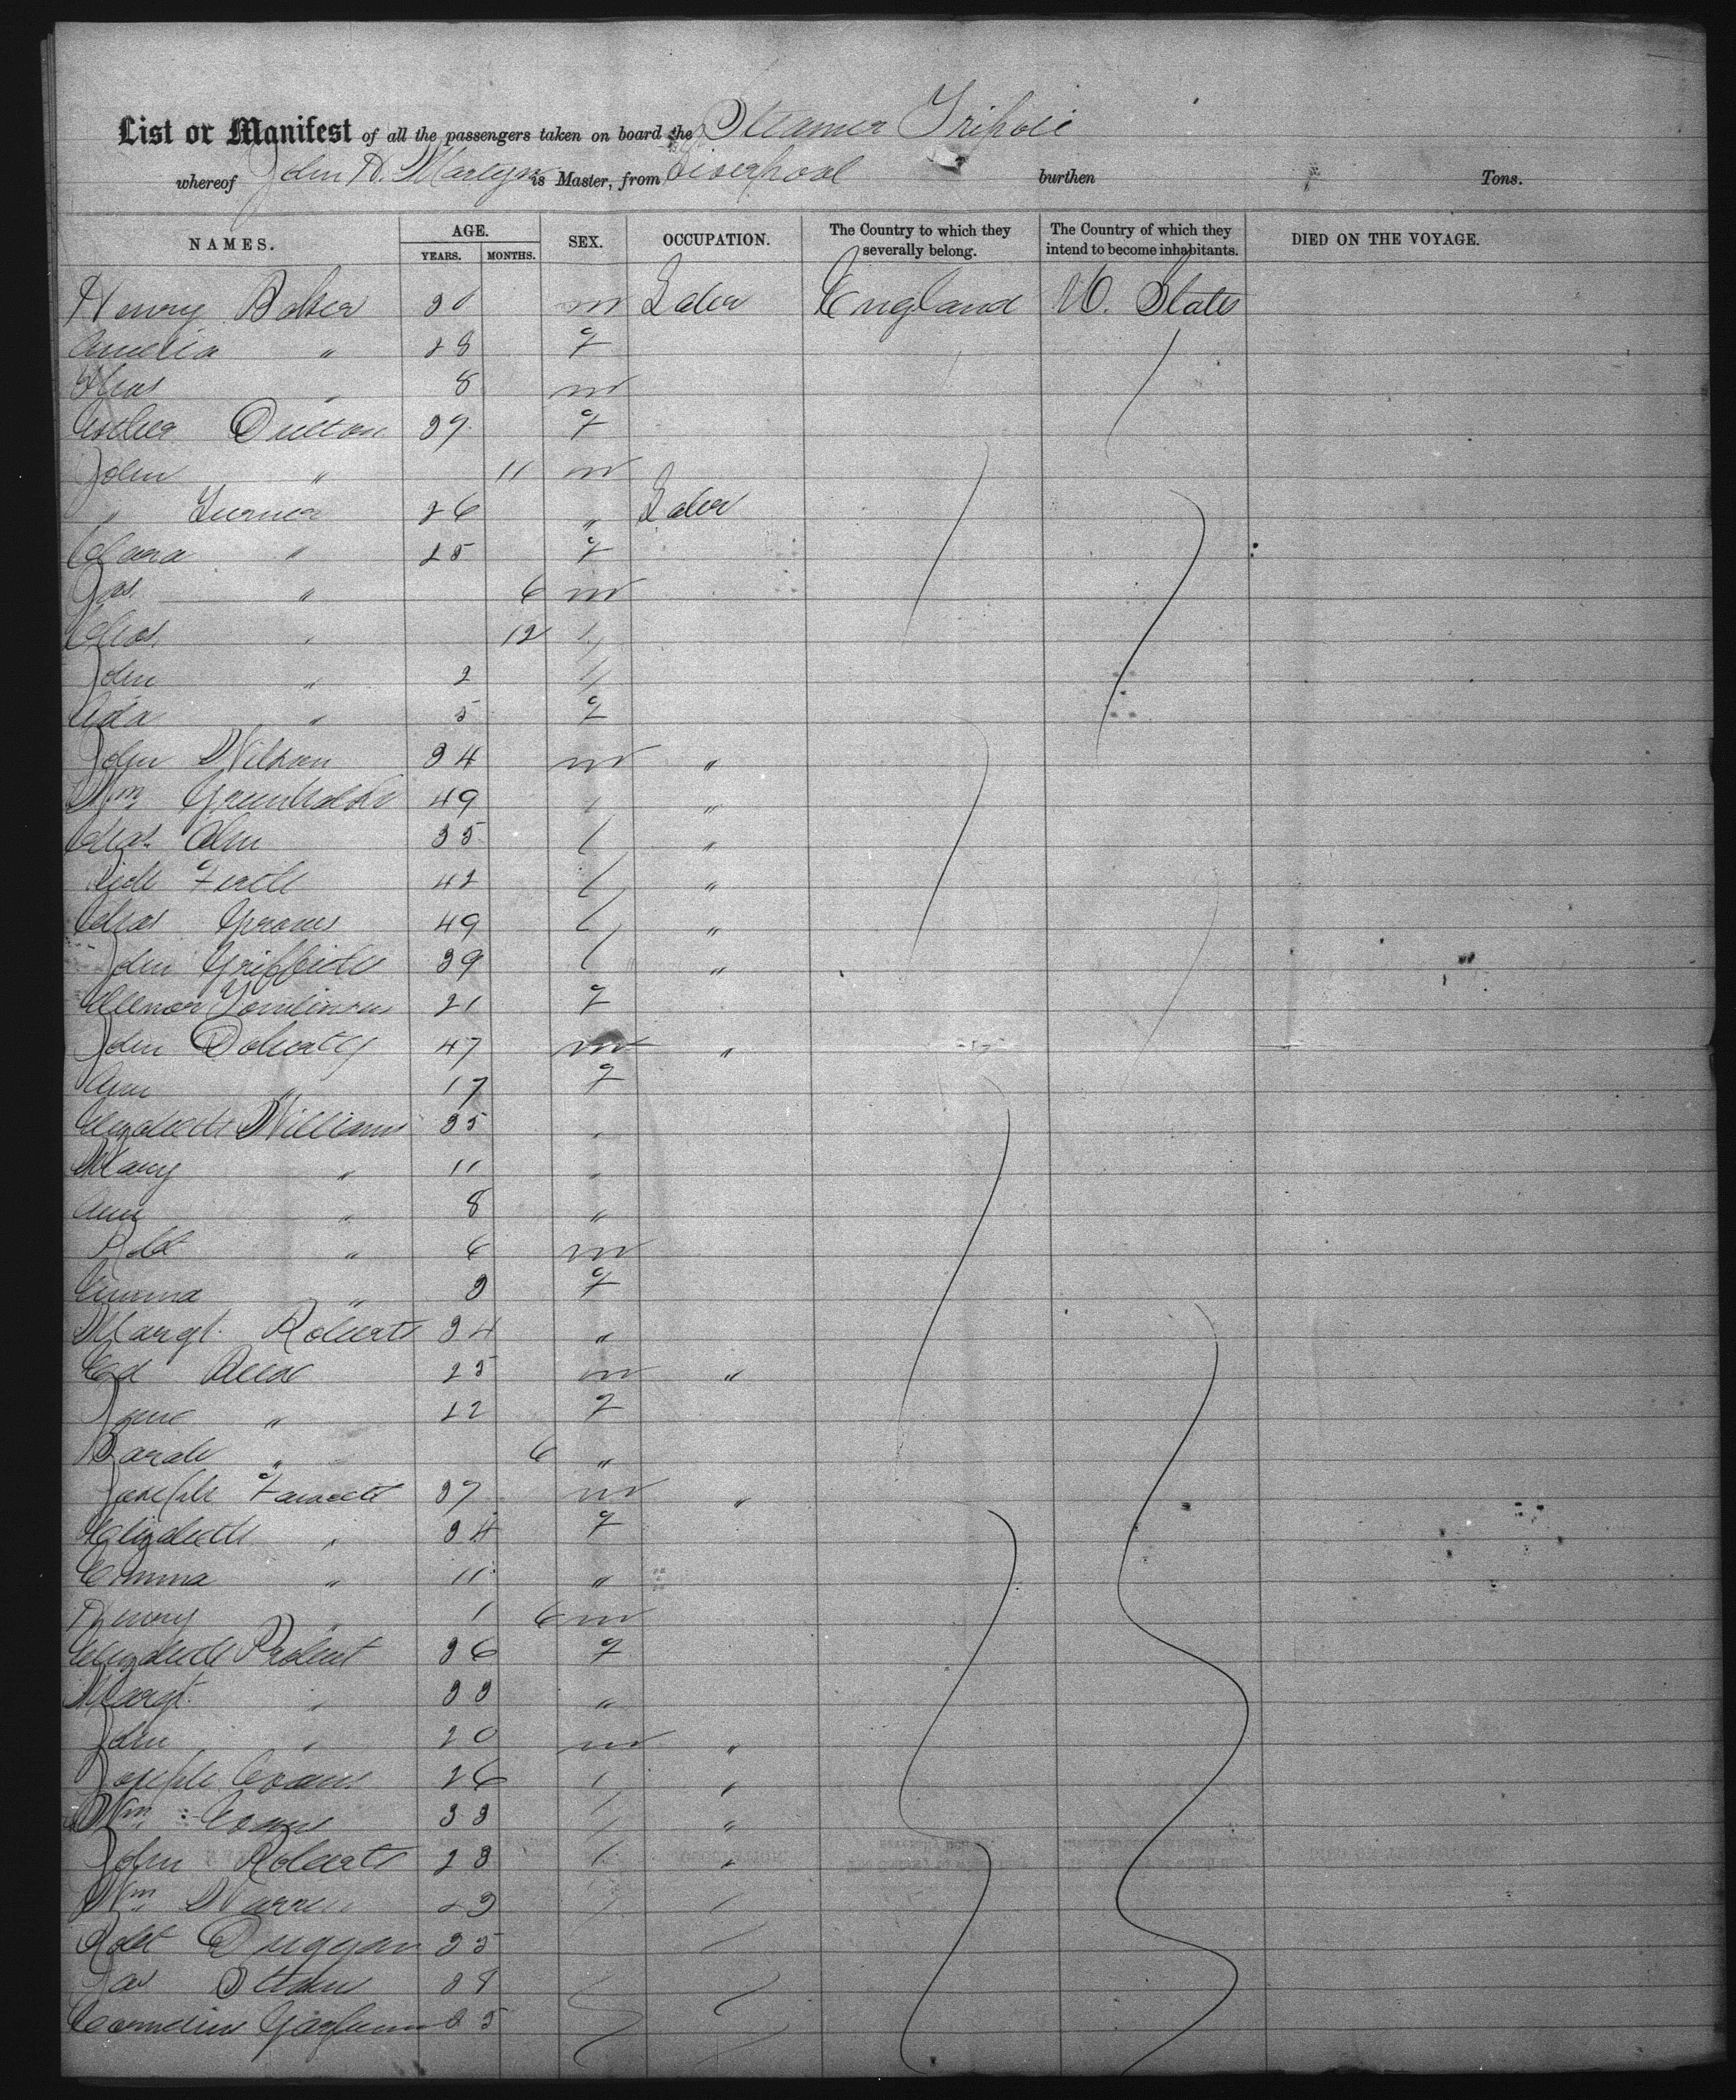 List or Manifest of all the passengers taken on board the Steamer Tripoli
whereof John H. Martyn is Master, from Liverpool burthen Tons.
NAMES. AGE. YEARS. MONTHS. SEX. OCCUPATION. The Country to which they severally belong. The Country of which they intend to become inhabitants. DIED ON THE VOYAGE.
Henry Baker 30 m Labr England U. States
Amelia " 28 f
Chas " 8 m
Esther Dutton 37 f
John " 11 m
" Turner 26 " Labr
Clara " 25 f
Jas. " 6 m
Chas. " 12 "
John " 2 "
Ada " 5 f
John Wilson 34 m "
Wm 49 " "
Chas. 35 " "
Firth 42 " "
Chas 49 " "
John Griffiths 39 " "
Ellenor Tomlinson 21 f
John Doherty 47 m "
Ann " 17 f
Elizabeth Williams 35 "
Mary " 11 "
Ann " 8 "
Robt " 6 m
Emma " 3 f
Margt. Roberts 34 "
Ed Rees 25 m "
Jane " 22 f
Sarah " 6 "
Joseph Fawcett 37 m "
Elizabeth " 34 f
Emma " 11 "
Henry " 1 6 m
Elizabeth Probert 36 f
Margt. " 33 "
John " 20 m "
Joseph Evans 26 " "
Wm Evans 33 " "
John Roberts 23 " "
Wm Warren 23 " "
Robt Duggan 35
Jas 38
Cornelius 35